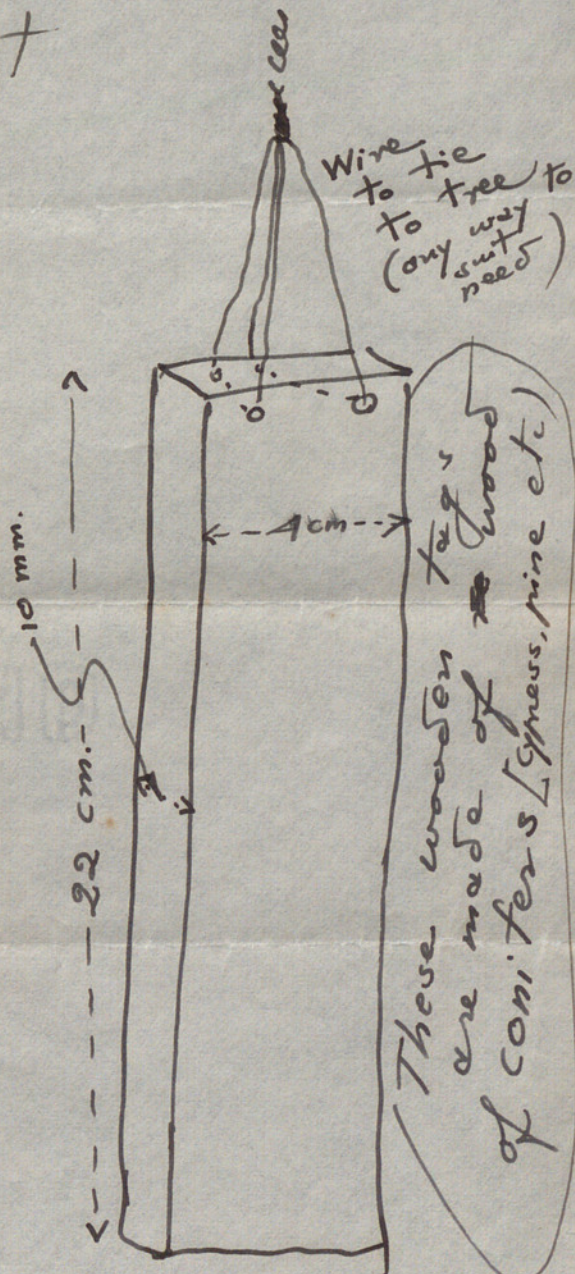 Wire
to tie
to tree to
(any way
suit
need)
10 mm.
22 cm.
4 cm
These wooden tags
are made of wood
of conifers [cypress, pine etc)